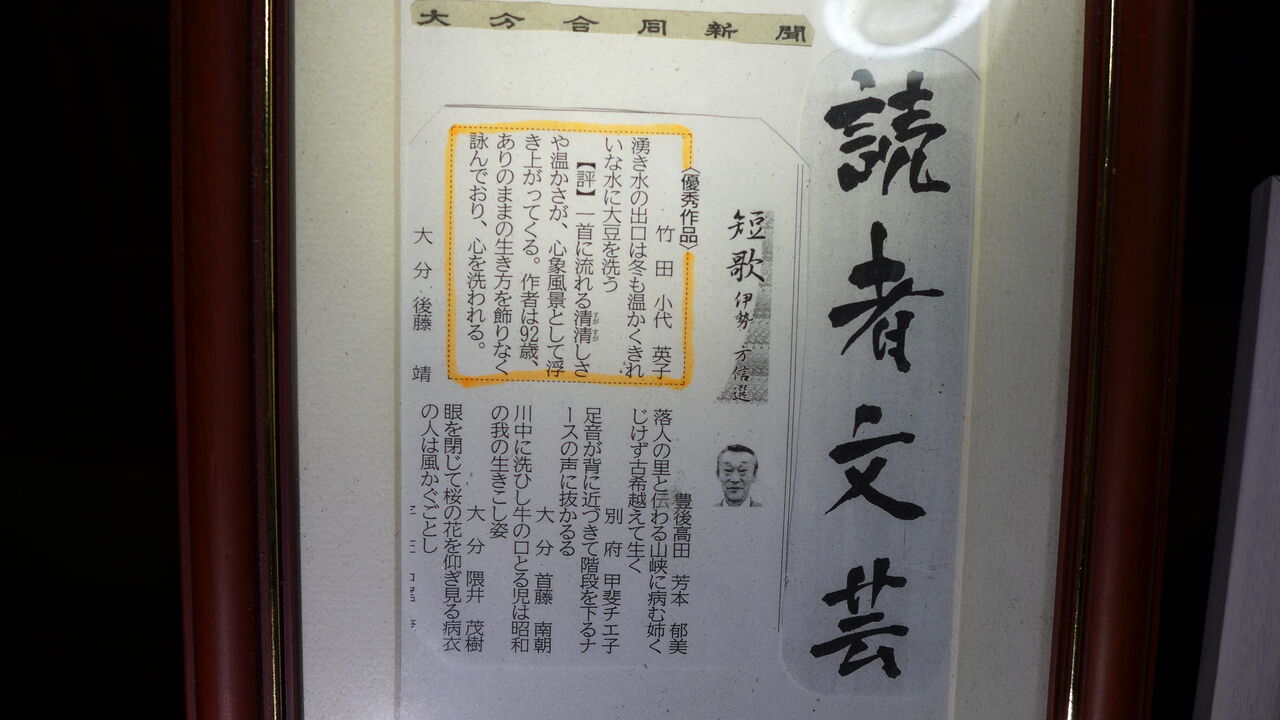 大分合同新聞
読者文芸
短歌
伊勢 方信選
〈優秀作品〉
竹田 小代 英子
湧き水の出口は冬も温かくきれ
いな水に大豆を洗う
【評】一首に流れる清清しさ
すがすが
や温かさが、心象風景として浮
き上がってくる。作者は92歳、
ありのままの生き方を飾りなく
詠んでおり、心を洗われる。
大分 後藤 靖
豊後高田 芳本 郁美
落人の里と伝わる山峡に病む姉く
じけず古希越えて生く
別府 甲斐チエ子
足音が背に近づきて階段を下るナ
ースの声に抜かるる
大分 首藤 南朝
川中に洗ひし牛の口とる児は昭和
の我の生きこし姿
大分 隈井 茂樹
眼を閉じて桜の花を仰ぎ見る病衣
の人は風かぐごとし